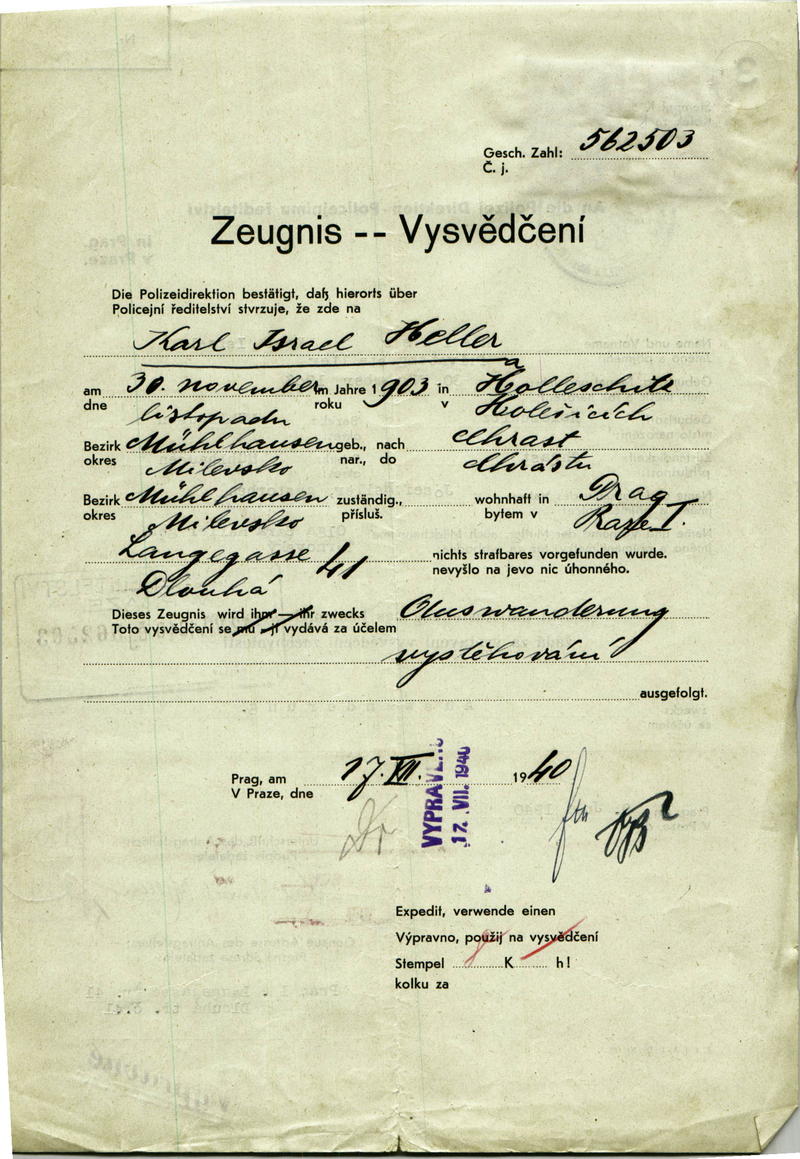 Gesch. Zahl: 562503
Č. j.
Zeugnis -- Vysvědčení
Die Polizeidirektion bestätigt, daß hierorts über
Policejní ředitelství stvrzuje, že zde na
Karl Israel Heller
am 30. november im Jahre 1903 in Holleschitz
dne listopadu roku v Holešicích
Bezirk Mühlhausen geb., nach Chrast
okres Milevsko nar., do Chrástu
Bezirk Mühlhausen zuständig., wohnhaft in Prag
okres Milevsko přísluš. bytem v Praze I.
Langegasse 41 nichts strafbares vorgefunden wurde.
Dlouhá nevyšlo na jevo nic úhonného.
Dieses Zeugnis wird ihm — ihr zwecks Auswanderung
Toto vysvědčení se mu - jí vydává za účelem
vystěhování
ausgefolgt.
Prag, am 17. VII. 1940
V Praze, dne
VYPRAVENO
17. VII. 1940
Expedit, verwende einen
Výpravno, použij na vysvědčení
Stempel K h!
kolku za